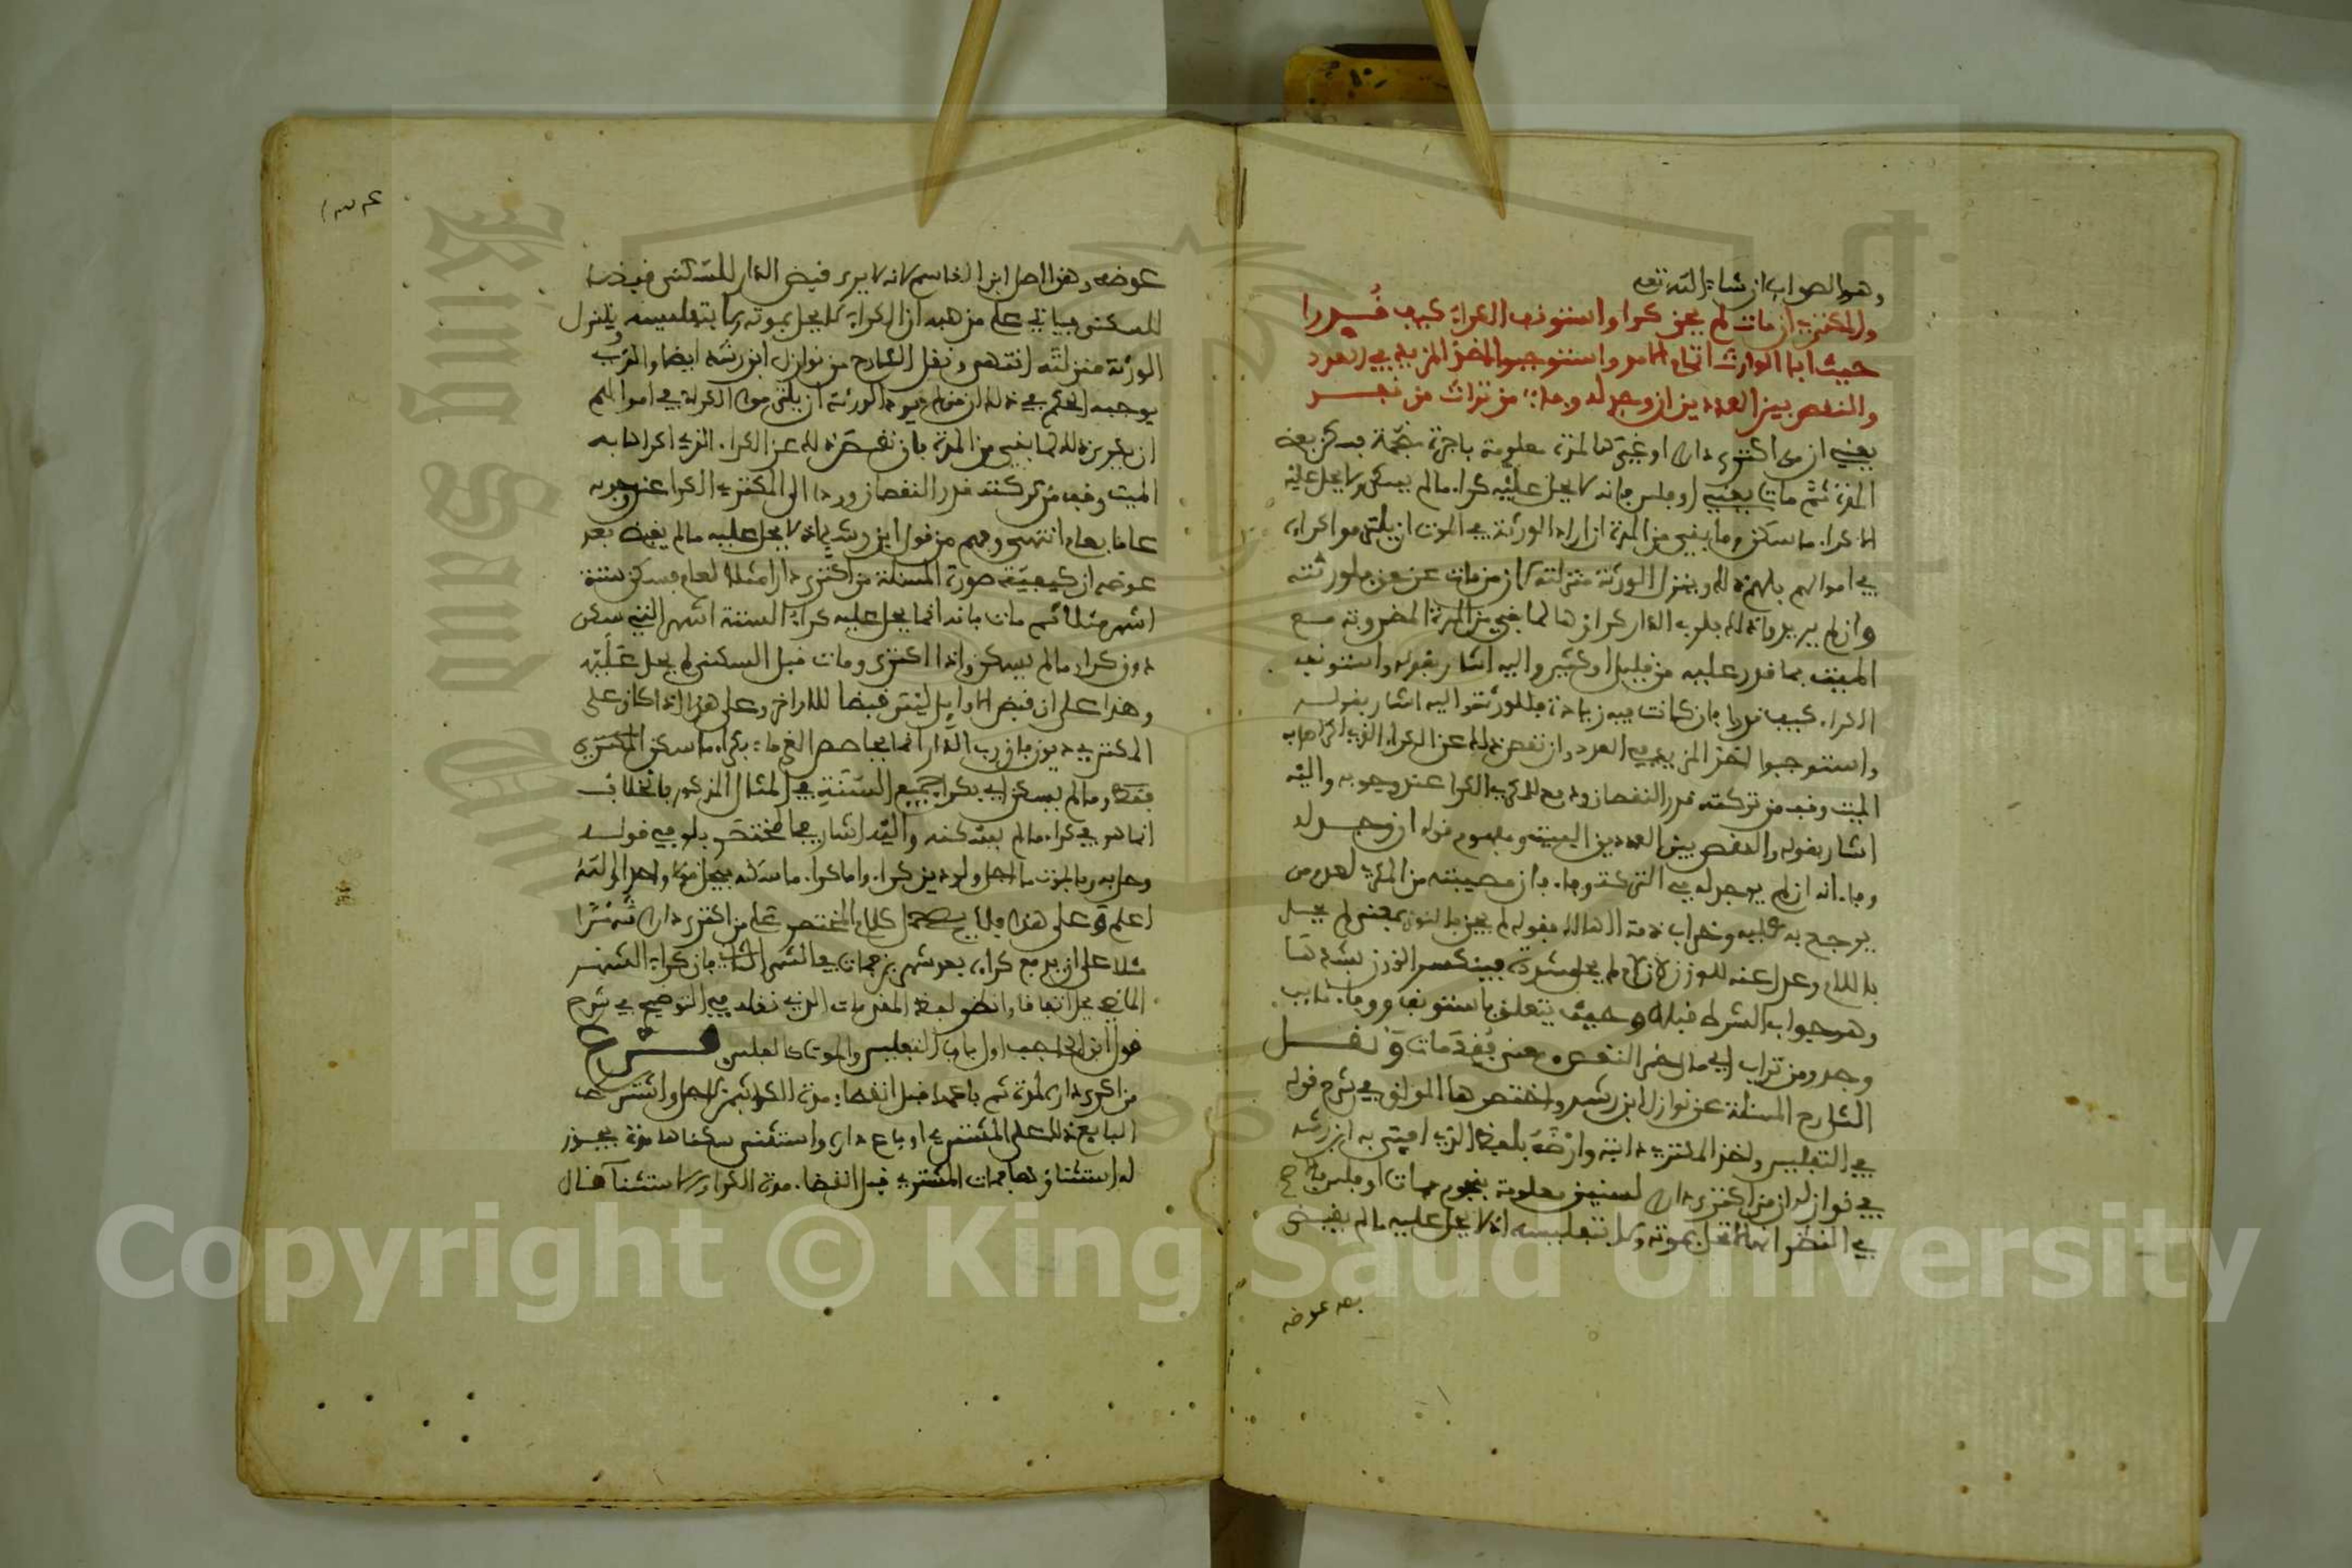 وهو الصواب ان شاء الله تعلى
والمكتري ان مات لم يحز كرا واستوفى الكراء كيف قدرا
حيث ابا الوارث اتمام الامر واستوجبوا اخذ المزيد في العدد
والنقص بين العددين ان وجد له وجاء من تراث من فقد
يعني ان من اكترى دارا او غيرها لمدة معلومة باجرة منجمة فسكن بعض
المدة ثم مات يعني او فلس فانه لا يحل عليه كراء ما لم يسكن ولا يحل عليه
الا كراء ما سكن وما بقي من المدة ان اراد الورثة في الموت ان يلتزموا كراءه
في اموالهم فلهم ذلك وينزل الورثة منزلته كان من مات عن حق فلورثته
وان لم يريدوا ذلك فلرب الدار كراؤها لما بقي من المدة المضروبة مع
الميت بما قدر عليه من قليل او كثير واليه اشار بقوله واستوفى
الكراء كيف قدرا فان كانت فيه زيادة فللورثة واليه اشار بقوله
واستوجبوا اخذ المزيد في العدد وان نقص ذلك عن الكراء الذي اكراها به
الميت وقف من تركته قدر النقصان ودفع للمكري الكرا عند وجوبه واليه
اشار بقوله والنقص بين العددين البيت ومفهوم قوله ان وجد له
وفاء انه ان لم يوجد له في التركة وفاء فان مصيبته من المكري لعدم من
يرجع به عليه وخراب ذمة الهالك فقوله لم يحز بالنون بمعنى لم يحل
باللام وعدل عنه للوزن لان لام لم يحل مشددة فينكسر الوزن بشدها
وهو جواب الشرط قبله وحيث يتعلق باستوفى ووفاء نايب
وجد ومن تراث اي مال خبر النقص ومعنى فقد مات ونقل
الشارح المسئلة عن نوازل ابن رشد واختصرها المواق في شرح قوله
في التفليس واخذ المكري دابته وارضه بلفظ الذي افتى به ابن رشد
في نوازله ان من اكترى دارا لسنين معلومة بنجوم فمات او فلس فالصحيح
في النظر انها لا تحل بموته ولا بتفليسه اذ لا يحل عليه ما لم يقبض
بعد عوضه
عوضه وهذا اصل ابن القاسم لانه لا يرى قبض الدار للسكنى قبضا
للسكنى فياتي على مذهبه ان الكراء لا يحل بموته ولا بتفليسه وينزل
الورثة منزلته انتهى ونقل الشارح من نوازل ابن رشد ايضا والذي
يوجبه الحكم في ذلك ان لم يرد الورثة ان يلتزموا الكراء في اموالهم
ان يكري ذلك لما بقي من المدة فان نقص ذلك عن الكراء الذي اكراها به
الميت وقف من تركته قدر النقصان وردا الى المكتري الكرا عند وجوبه
عاما بعام انتهى وفهم من قول ابن رشد اذ لا يحل عليه ما لم يقبض بعد
عوضه ان كيفية صورة المسئلة من اكترى دارا مثلا لعام فسكن ستة
اشهر مثلا ثم مات فانه انما يحل عليه كراء الستة اشهر التي سكن
دون كراء ما لم يسكن واذا اكترى ومات قبل السكنى لم يحل عليه
وهذا على ان قبض الاوايل ليس قبضا للاواخر وعلى هذا اذا كان على
المكتري ديون فان رب الدار انما يحاصص الغرماء بكراء ما سكن المكتري
فقط وما لم يسكن اي بكراء جميع السنة في المثال المذكور فالخلاف
انما هو في كراء ما لم يسكنه واليه اشار في المختصر بلو في قوله
وحل به وبالموت ما اجل ولو دين كراء واما كراء ما سكنه فيحل قولا واحدا والله
اعلم وعلى هذا فلا يصح حمل كلام المختصر على من اكترى دارا شهرا
مثلا على ان يدفع كراءه بعد شهرين فمات في الشهر الثاني فان كراء الشهر
الماضي يحل اتفاقا وانظر لفظ المقدمات الذي نقله في التوضيح في شرح
قول ابن الحاجب اول باب التفليس والموت كالفلس فرع
من اكرى داره لمدة ثم باعها قبل انقضاء مدة الكراء بثمن لاجل واشترط
البايع ذلك على المشتري او باع داره واستثنى سكناها مدة يجوز
له استثناؤها فمات المشتري قبل انقضاء مدة الكراء والاستثناء قال